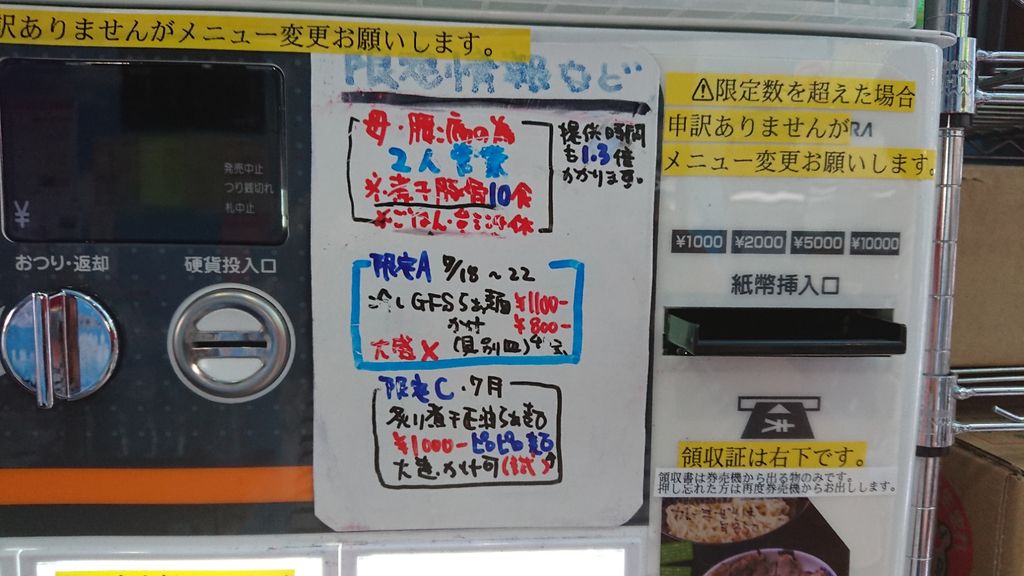 訳ありませんがメニュー変更お願いします。
限定情報など
母・腰痛の為
2人営業
※煮干豚骨10食
※ごはん・
提供時間
も1.3倍
かかります。
限定A 7/18～22
冷しGFSSらぁ麺 ¥1100-
かけ ¥800-
大盛× (具別皿)
限定C・7月
炙り煮干正油らぁ麺
¥1000-ピロピロ麺
大盛・かけ可(試)
発売中止
つり銭切れ
札中止
¥
おつり・返却
硬貨投入口
⚠限定数を超えた場合
申訳ありませんが
RA
メニュー変更お願いします。
¥1000 ¥2000 ¥5000 ¥10000
紙幣挿入口
領収証は右下です。
領収書は券売機から出る物のみです。
押し忘れた方は再度券売機からお出しします。